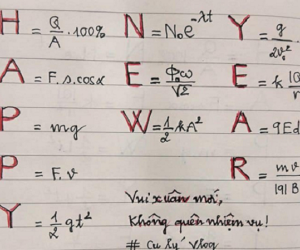 H = Q/A .100% N = N₀e^-λt Y = g/2v₀²
A = F.s.cosα E = Φ₀ω/√2 E = k |Q
P = mg W = 1/2 kA² A = qEd
P = F.v R = mv/|q|B
Y = 1/2 gt² Vui xuân mới,
Không quên nhiệm vụ!
# Cu Tý vlog